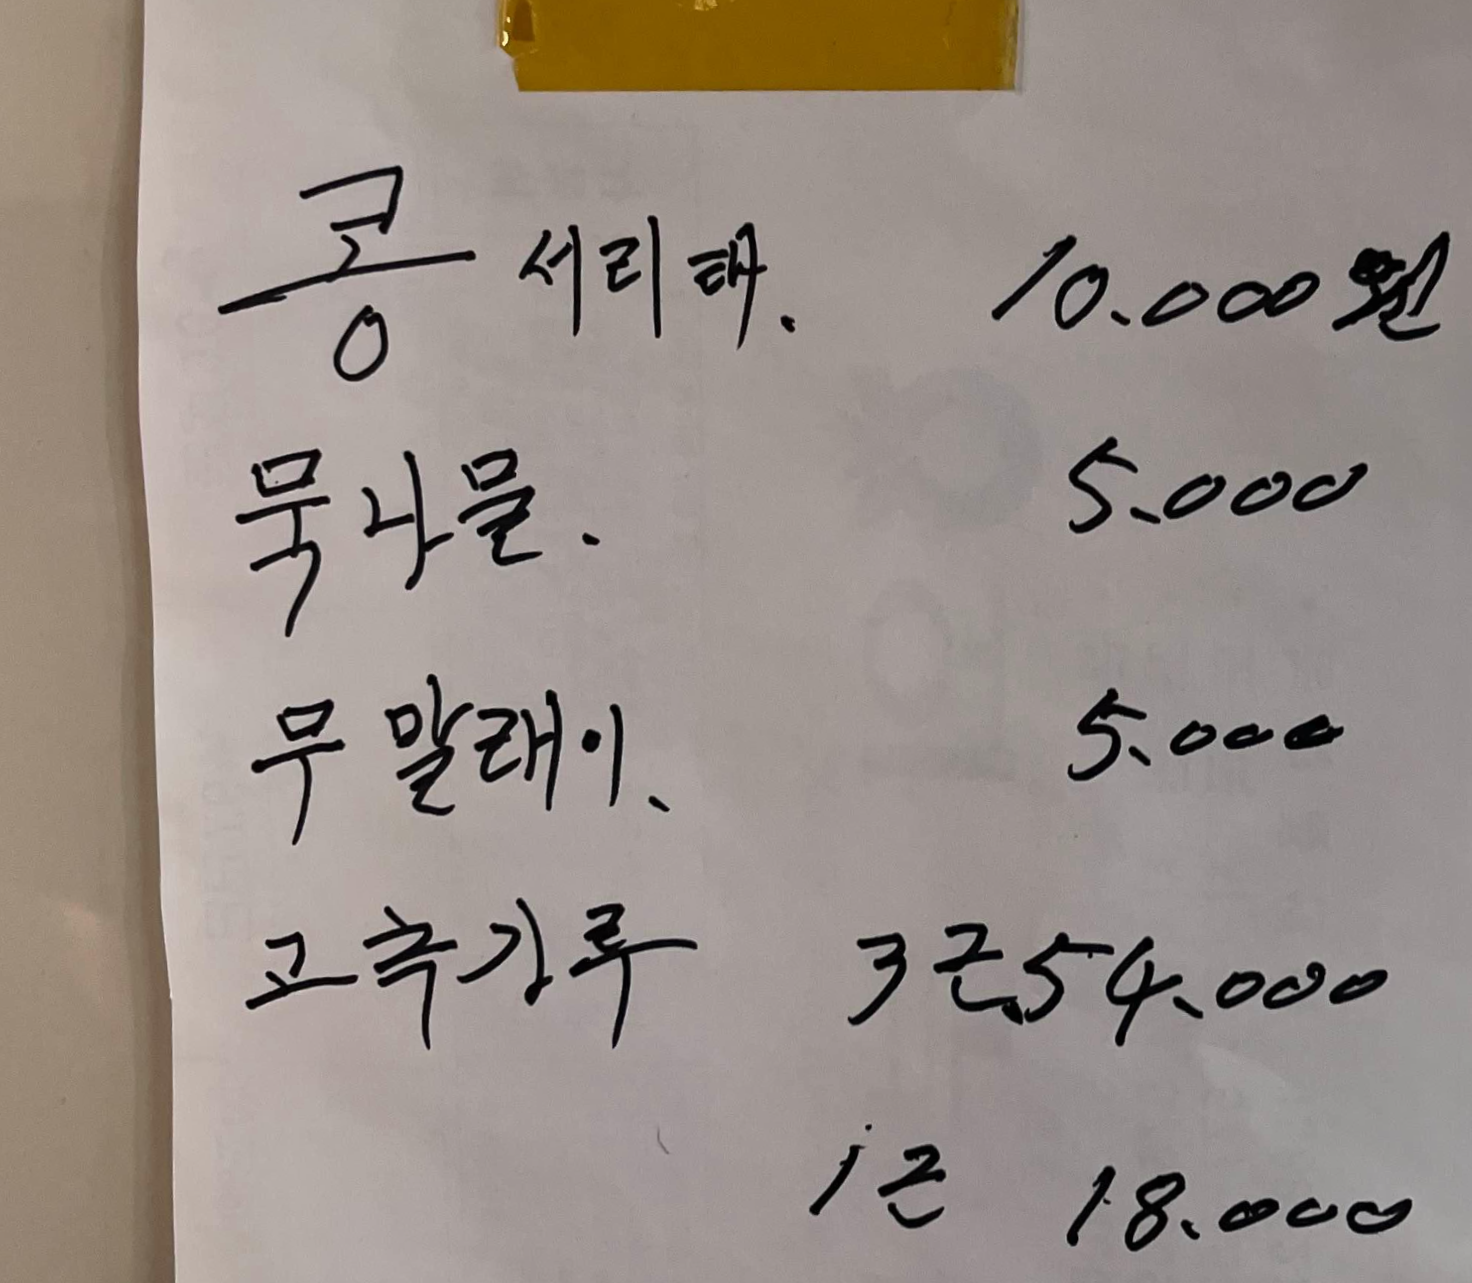 콩 서리태. 10.000원
묵나물. 5.000
무말래이. 5.000
고추가루 3근 54.000
1근 18.000